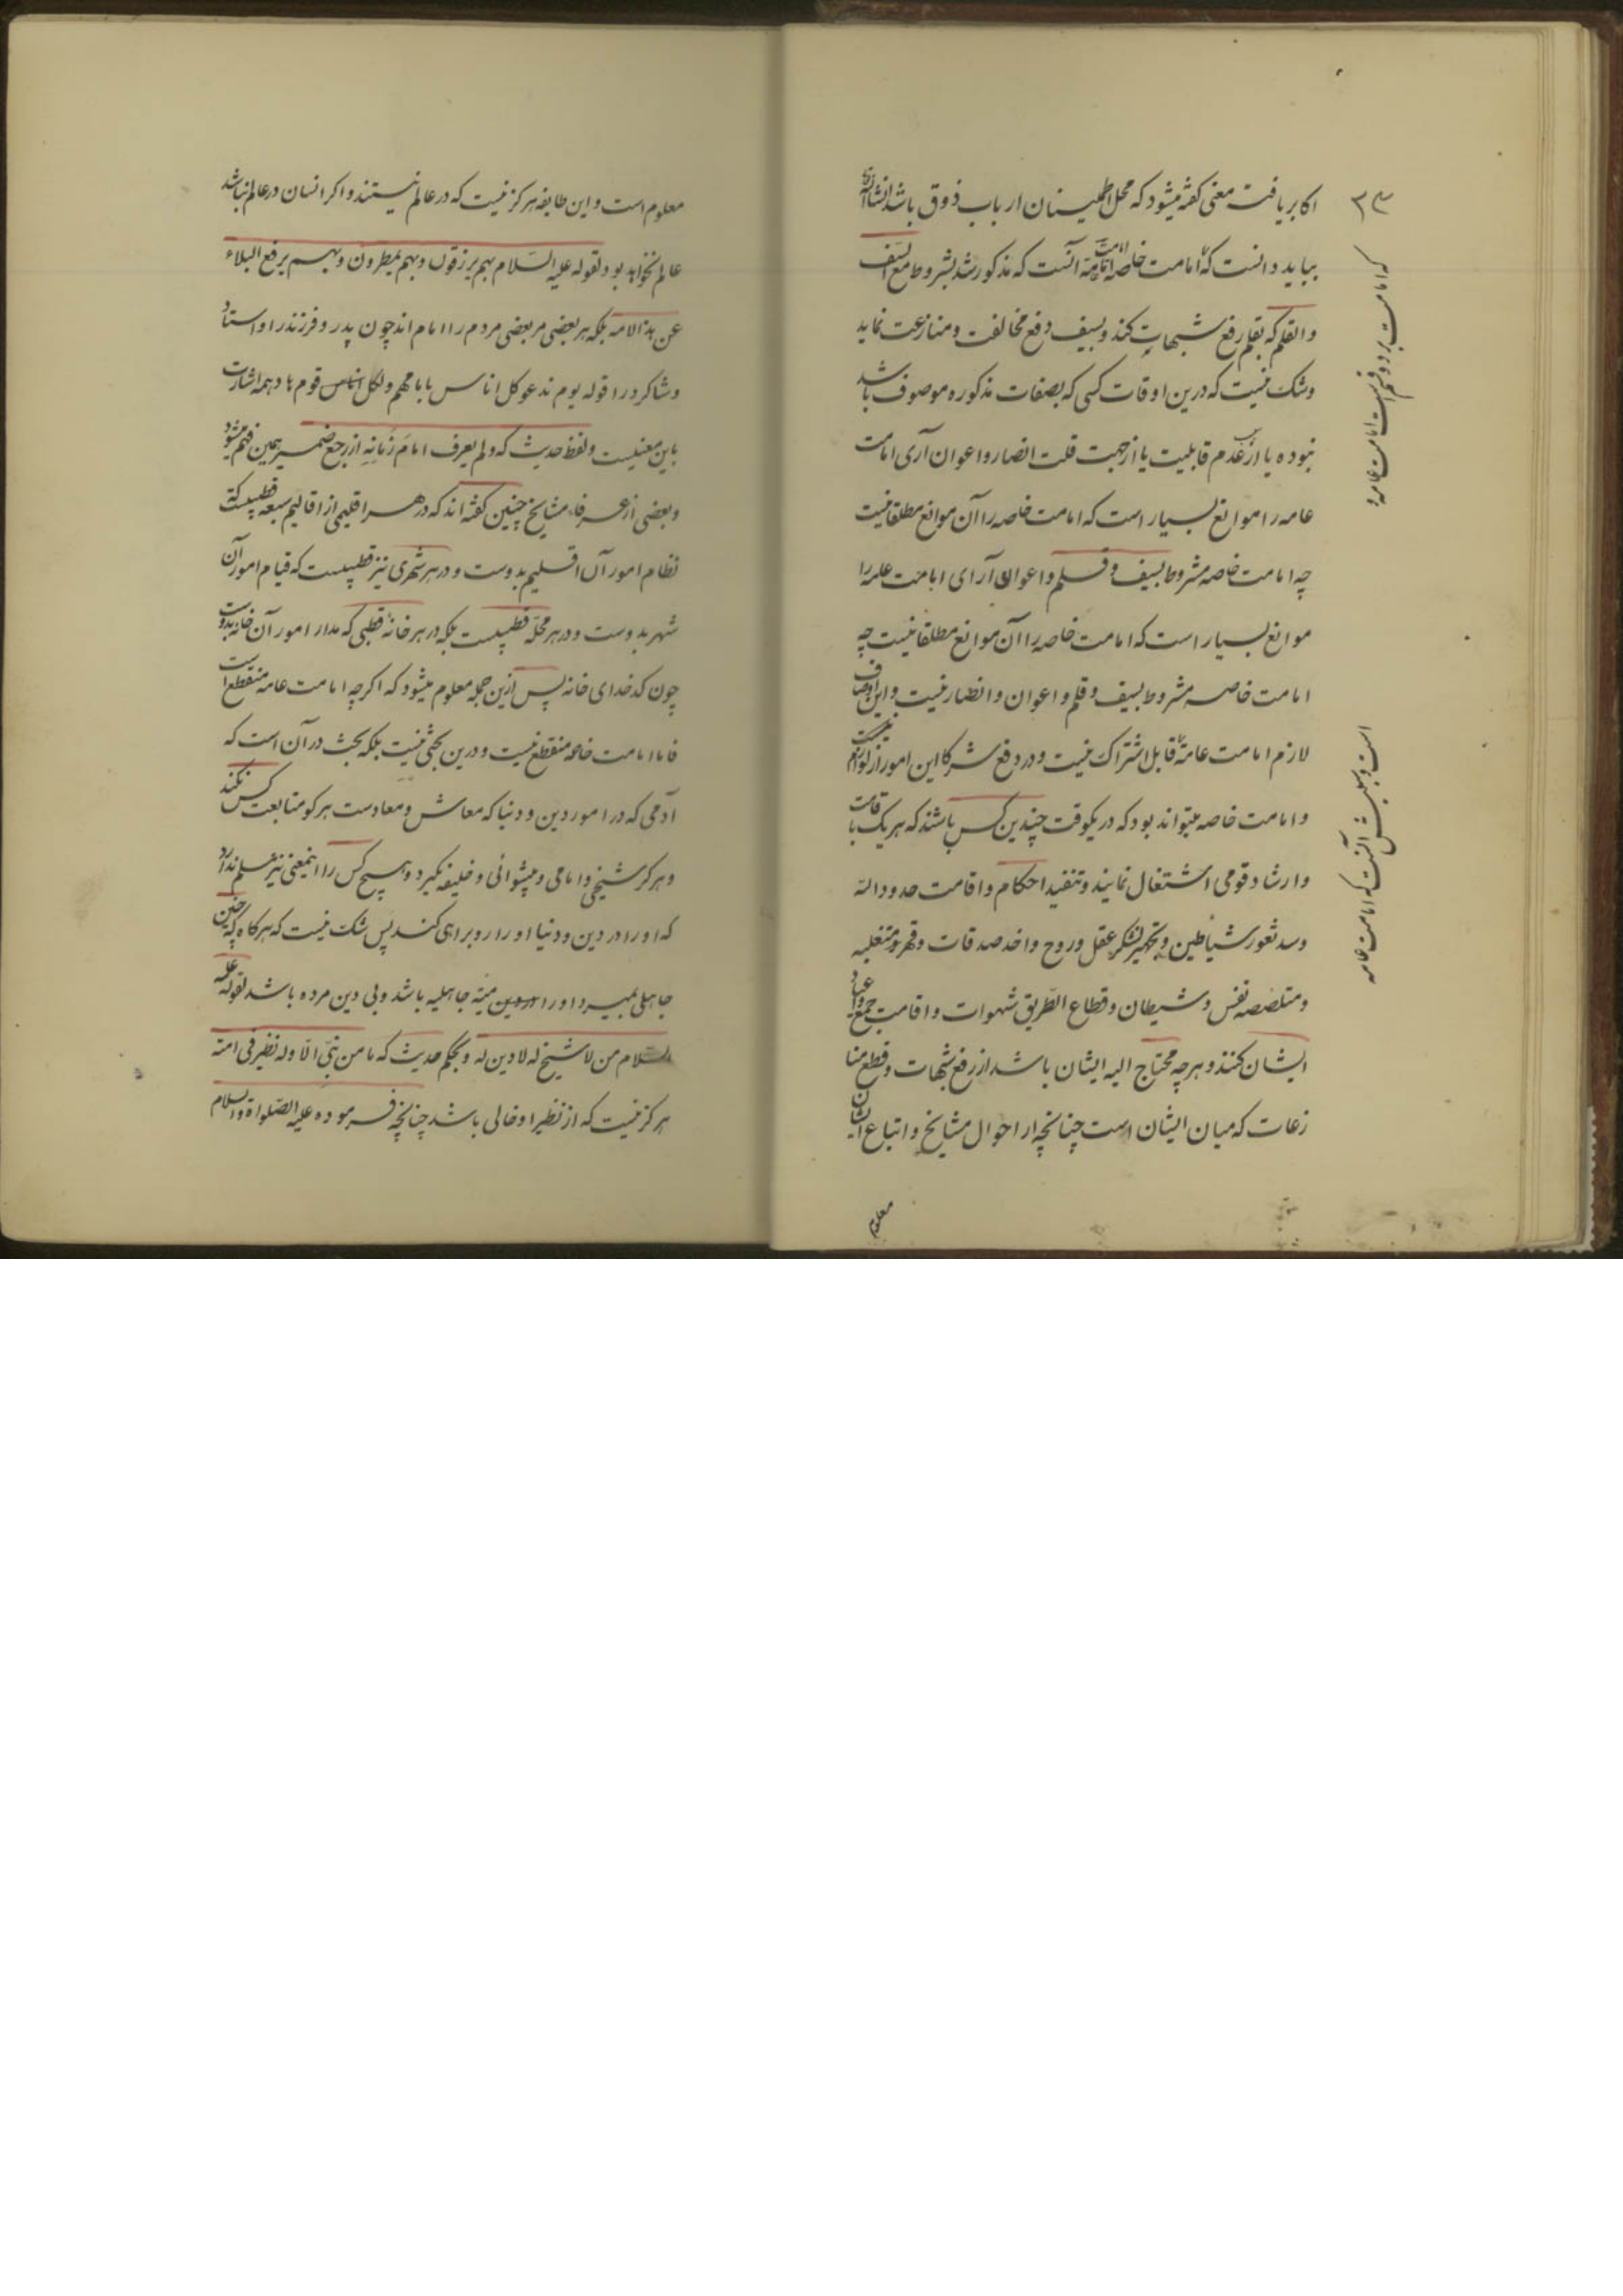 اکابر یافت معنی گفته میشود که محل اطمینان ارباب ذوق باشد انشاالله
بباید دانست که امامت خاصه امامت آنست که مذکور شد بشروط مع السیف
والقلم که بقلم رفع شبهات کند و بسیف دفع مخالفت و منازعت نماید
وشک نیست که درین اوقات کسی که بصفات مذکوره موصوف باشد
نبوده یا از عدم قابلیت یا از جهت قلت انصار و اعوان آری امامت
عامه را موانع بسیار است که امامت خاصه را آن موانع مطلقا نیست
چه امامت خاصه مشروط بسیف و قلم و اعوان آرای امامت عامه را
موانع بسیار است که امامت خاصه را آن موانع مطلقا نیست چه
امامت خاصه مشروط بسیف و قلم و اعوان و انصار نیست و این اوصاف
لازم امامت عامه قابل اشتراک نیست و در دفع شرکا این امور از لوازم
و امامت خاصه میتواند بود که در یکوقت چندین کس باشند که هر یک با
وارشاد قومی اشتغال نمایند و تنفیذ احکام و اقامت حدود الله
وسد ثغور شیاطین و تجهیز لشکر عقل و روح و اخذ صدقات و قهر متغلبه
ومتلصصه نفس و شیطان و قطاع الطریق شهوات و اقامت جمع و اعیاد
ایشان کنند و هرچه محتاج الیه ایشان باشد از رفع شبهات و قطع منا
زعات که میان ایشان است چنانچه از احوال مشایخ و اتباع ایشان
معلوم
۳۴
که امامت بر دو قسم است امامت عامه و
است و سبیلش آنست که امامت عامه
معلوم است و این طایفه هرگز نیست که در عالم نیستند و اگر انسان در عالم نباشد
عالم نخواهد بود لقوله علیه السلام بهم یرزقون و بهم یمطرون و بهم یرفع البلاء
عن هذا الامه بلکه هر بعضی مر بعضی مردم را امام اند چون پدر و فرزند را و استاد
وشاکرد را قوله یوم ندعو کل اناس بامامهم ولکل قوم هاد همه اشارت
باین معنیست و لفظ حدیث که ولم یعرف امام زمانه از رجع ضمیر همین فهم میشود
وبعضی از عرفاء مشایخ چنین گفته اند که در هر اقلیمی از اقالیم سبعه قطبیست که
نظام امور آن اقلیم بدوست و در هر شهری نیز قطبیست که قیام امور آن
شهر بدوست و در هر محله قطبیست بلکه در هر خانه قطبی که مدار امور آن خانه بدوست
چون کدخدای خانه پس ازین جمله معلوم میشود که اکرچه امامت عامه منقطع است
فاما امامت خاصه منقطع نیست و درین بحثی نیست بلکه بحث در آن است که
آدمی که در امور دین و دنیا که معاش و معاد است هرکو متابعت کس نکند
وهرکز شیخی و امامی و پیشوائی و خلیفه نگیرد و هیچ کس را اینمعنی نیز مسلم ندارد
که او را در دین و دنیا او را رو براهی کند پس شک نیست که هرکاه که چنین
جاهلی بمیرد او را میته جاهلیه باشد و بی دین مرده باشد لقوله علیه
السلام من لا شیخ له لا دین له و بحکم حدیث که ما من نبی الا وله نظیر فی امته
هرکز نیست که از نظیر او خالی باشد چنانچه فرموده علیه الصلواة والسلام